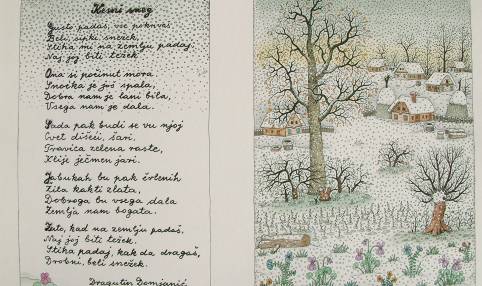 Kesni sneg
Gusto padaš, vse pokrivaš
Beli, sipki snežek,
Stiha mi na zemlju padaj.
Naj joj biti težek.
Ona si počinut mora
Snočka je još spala,
Dobra nam je lani bila,
Vsega nam je dala.
Sada pak budi se vu njoj
Cvet dišeči, šari,
Travica zelena raste,
Klije ječmen jari.
Jabukah bu pak črlenih
Zita kakti zlata,
Dobroga bu vsega dala
Zemlja nam bogata.
Zato, kad na zemlju padaš,
Naj joj biti težek.
Stiha padaj, kak da dragaš,
Drobni, beli snežek.
Dragutin Domjanić